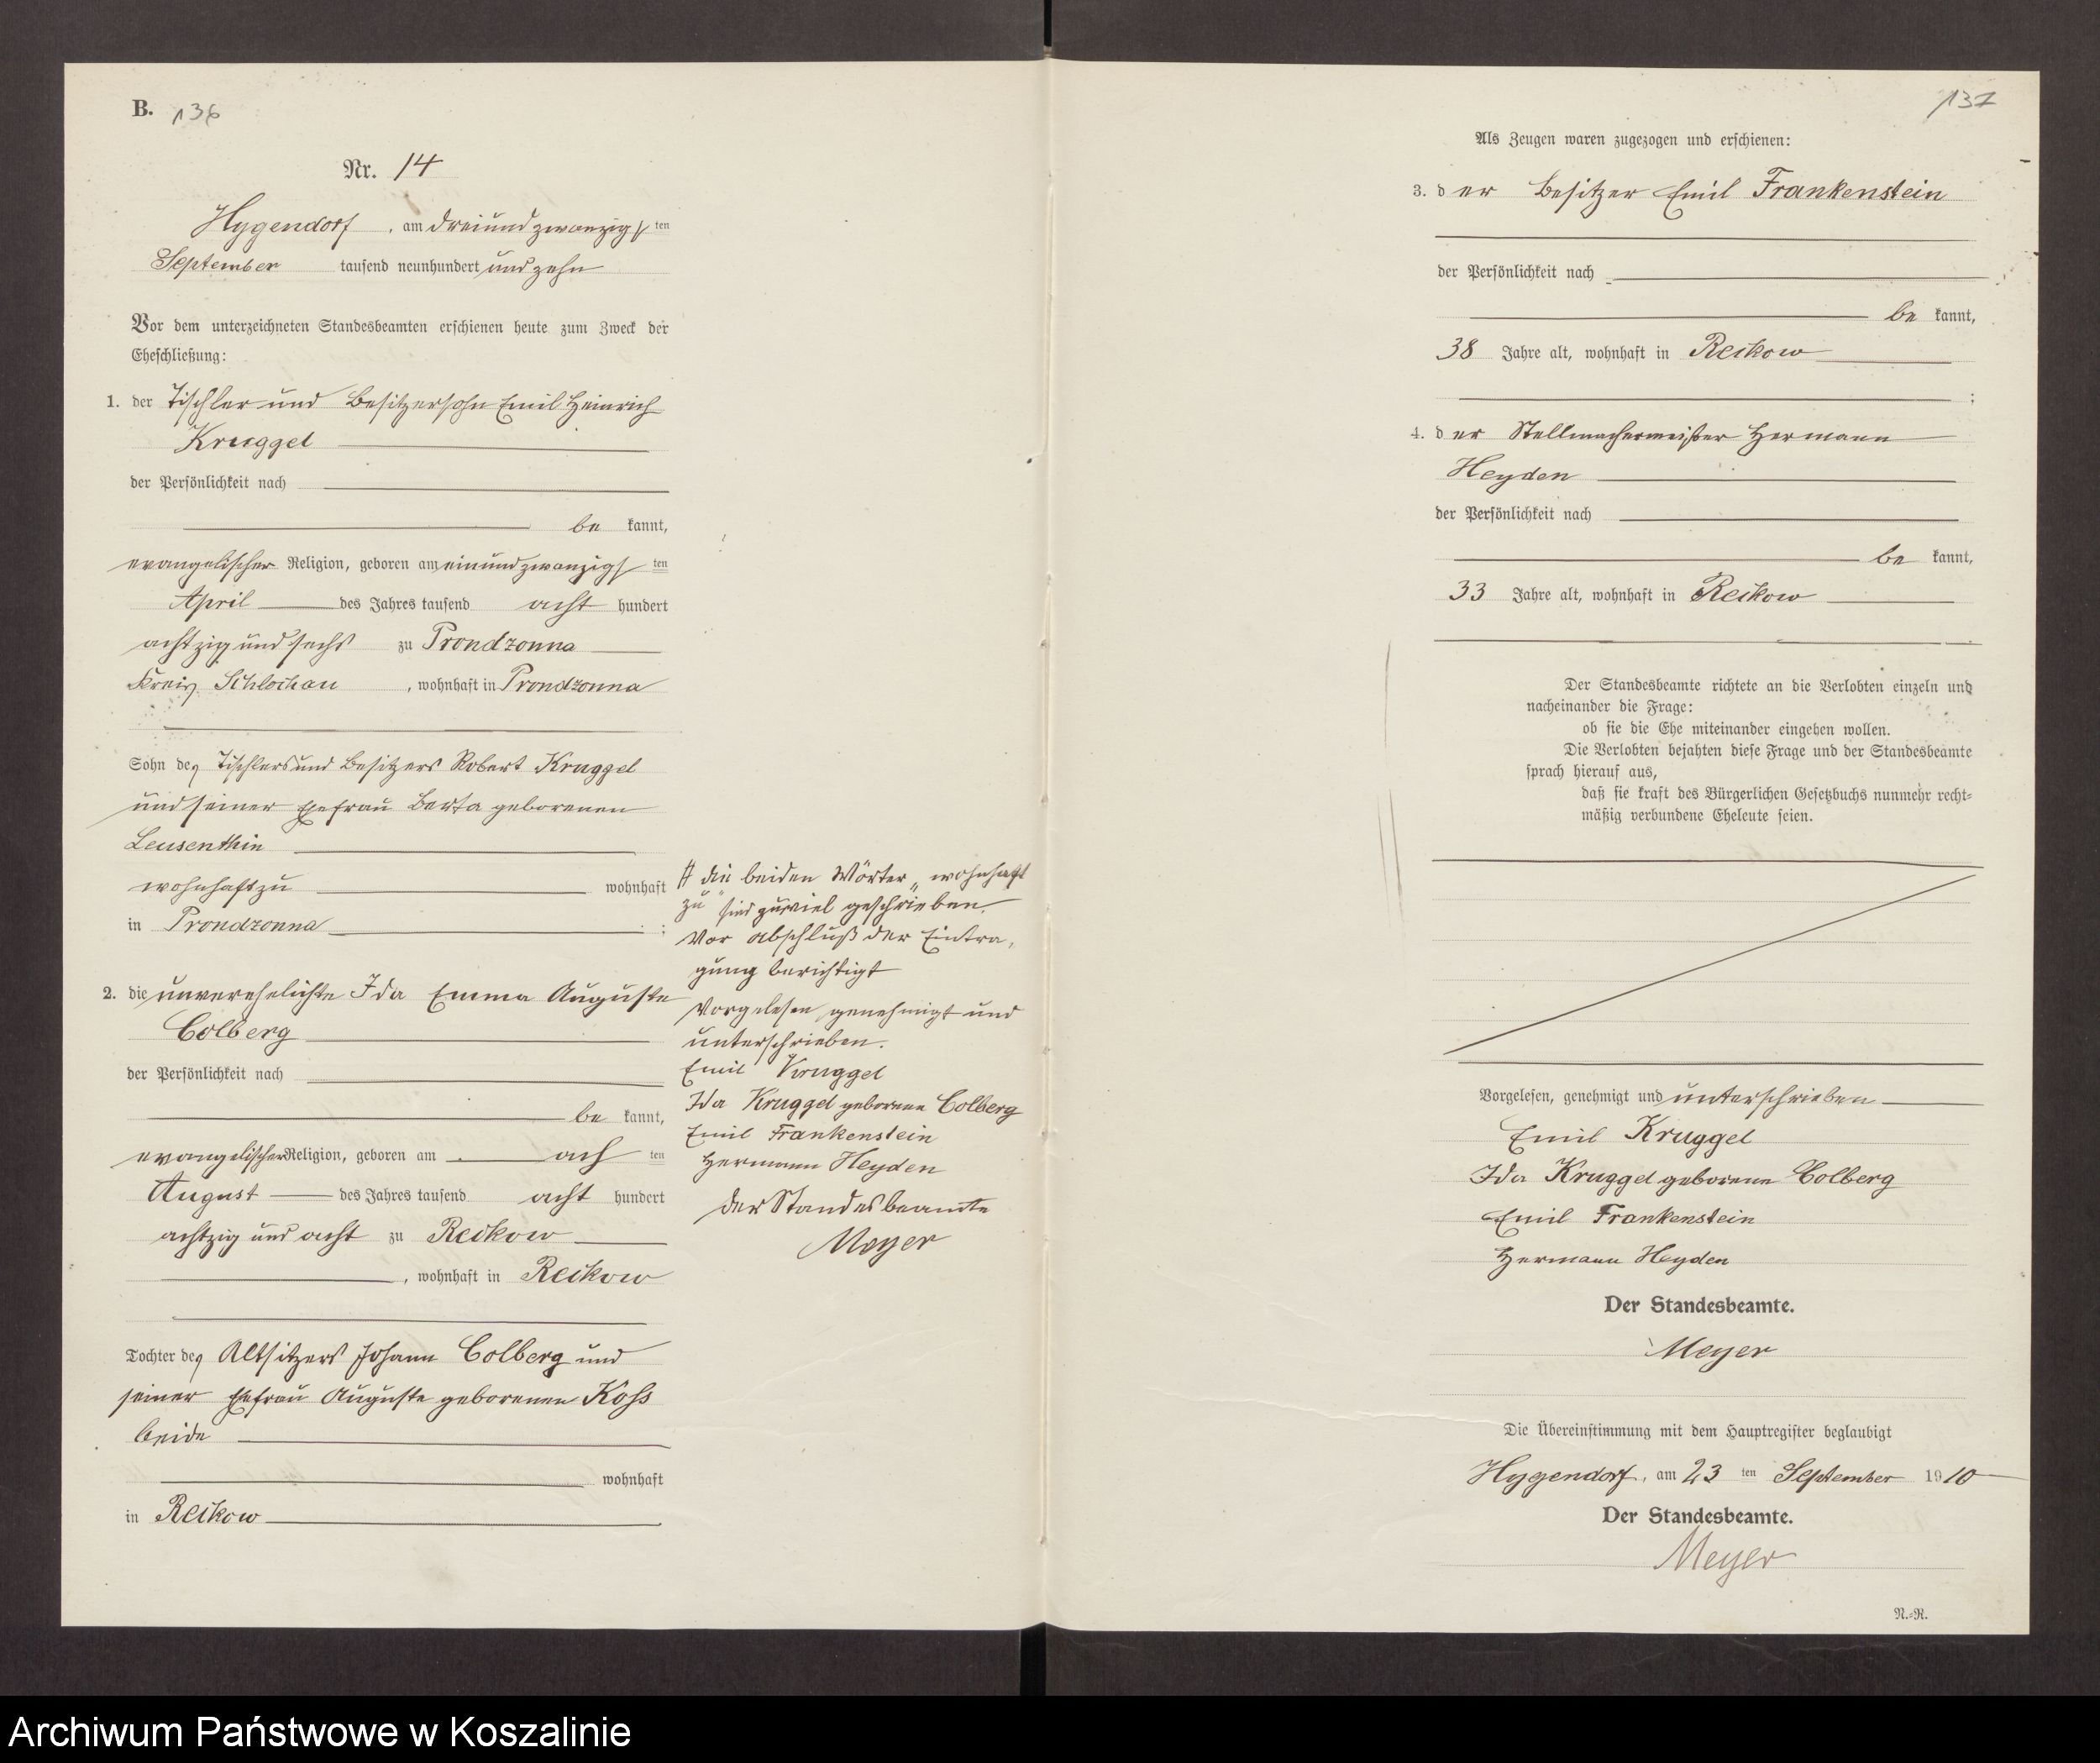 B. 136
Nr. 14
Hygendorf, am dreiundzwanzigsten
September tausend neunhundert und zehn
Vor dem unterzeichneten Standesbeamten erschienen heute zum Zweck der
Eheschließung:
1. der Tischler und Besitzersohn Emil Heinrich
Kruggel
der Persönlichkeit nach
be kannt,
evangelischer Religion, geboren am einundzwanzigsten
April des Jahres tausend acht hundert
achtzig und sechs zu Prondzonna
Kreis Schlochau, wohnhaft in Prondzonna
Sohn des Tischlers und Besitzers Robert Kruggel
und seiner Ehefrau Berta geborenen
Leusenthin
wohnhaft zu wohnhaft
in Prondzonna ;
2. die unverehelichte Ida Emma Auguste
Colberg
der Persönlichkeit nach
be kannt,
evangelischer Religion, geboren am achten
August des Jahres tausend acht hundert
achtzig und acht zu Reckow
, wohnhaft in Reckow
Tochter des Altsitzers Johann Colberg und
seiner Ehefrau Auguste geborenen Koss
beide
wohnhaft
in Reckow
die beiden Wörter „wohnhaft
zu" sind zuviel geschrieben.
Vor Abschluß der Eintra-
gung berichtigt
Vorgelesen, genehmigt und
unterschrieben.
Emil Kruggel
Ida Kruggel geborene Colberg
Emil Frankenstein
Hermann Heyden
der Standesbeamte
Meyer
137
Als Zeugen waren zugezogen und erschienen:
3. der Besitzer Emil Frankenstein
der Persönlichkeit nach
be kannt,
38 Jahre alt, wohnhaft in Reckow
;
4. der Stellmachermeister Hermann
Heyden
der Persönlichkeit nach
be kannt,
33 Jahre alt, wohnhaft in Reckow
Der Standesbeamte richtete an die Verlobten einzeln und
nacheinander die Frage:
ob sie die Ehe miteinander eingehen wollen.
Die Verlobten bejahten diese Frage und der Standesbeamte
sprach hierauf aus,
daß sie kraft des Bürgerlichen Gesetzbuchs nunmehr recht-
mäßig verbundene Eheleute seien.
Vorgelesen, genehmigt und unterschrieben
Emil Kruggel
Ida Kruggel geborene Colberg
Emil Frankenstein
Hermann Heyden
Der Standesbeamte.
Meyer
Die Übereinstimmung mit dem Hauptregister beglaubigt
Hygendorf, am 23 ten September 1910
Der Standesbeamte.
Meyer
N.-R.
Archiwum Państwowe w Koszalinie